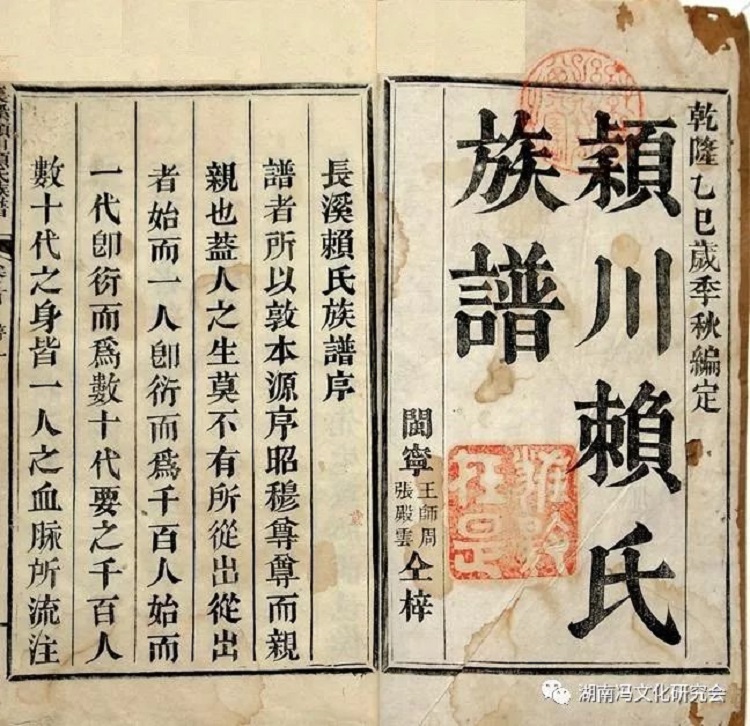 乾隆乙巳歲季秋編定
穎川賴氏
族譜
閩寧
王師周
張殿雲
仝梓
長溪賴氏族譜序
譜者所以敦本源序昭穆尊尊而親
親也葢人之生莫不有所從出從出
者始而一人卽衍而爲千百人始而
一代卽衍而爲數十代要之千百人
數十代之身皆一人之血脉所流注
湖南冯文化研究会